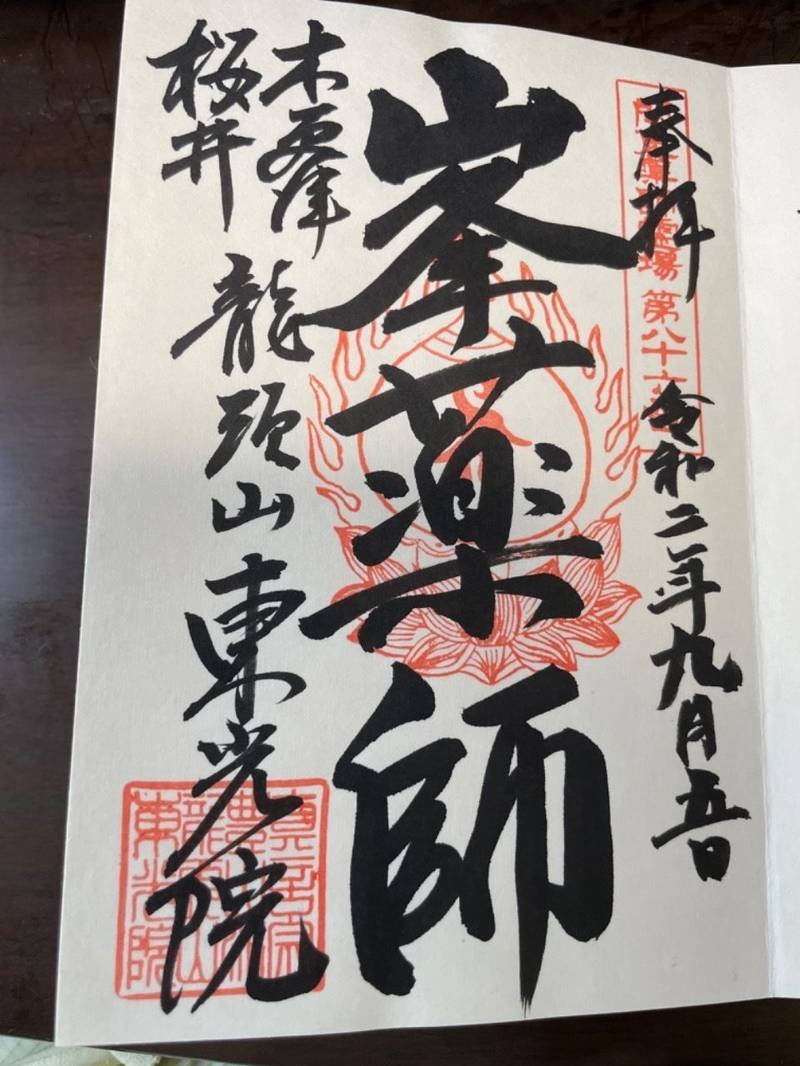 奉拝
令和二年九月五日
霊場 第八十
峯薬師
木更津
桜井
龍頭山 東光院
真言宗
東光院